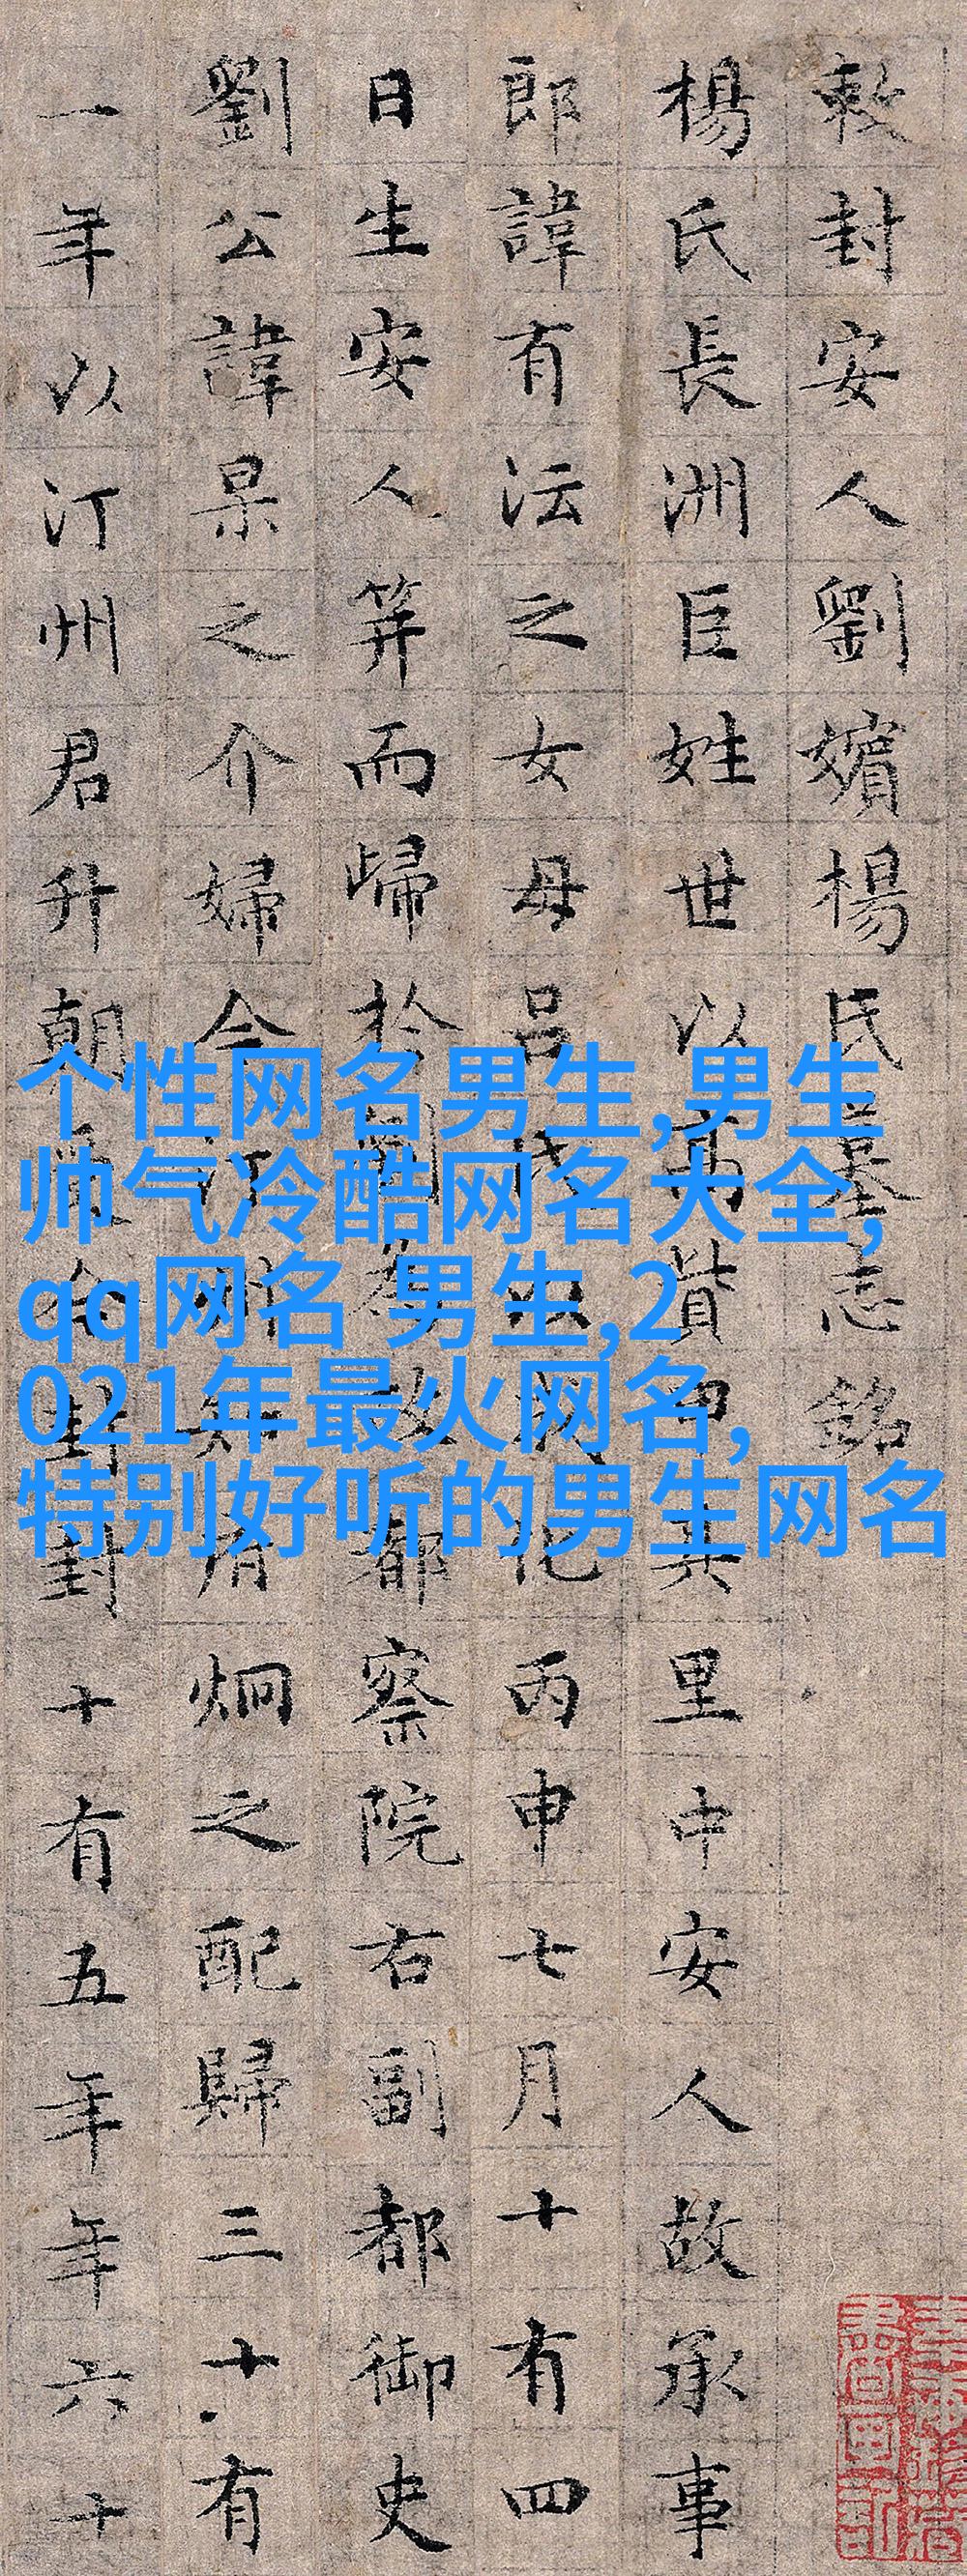 敕封安人劉嬪楊氏墓志銘
楊氏長洲臣姓世以高貲甲其里中安人故承事
郎諱有沄之女母呂氏以成化丙申七月十有四
日生安人笄而歸於劉為故都察院右副都御史
劉公諱杲之介婦今汀州知府炯之配歸三十有
一年以汀州君升朝今封封十有五年年六十
个性网名男生,男生
帅气冷酷网名大全,
qq网名 男生,2
021年最火网名,
特别好听的男生网名